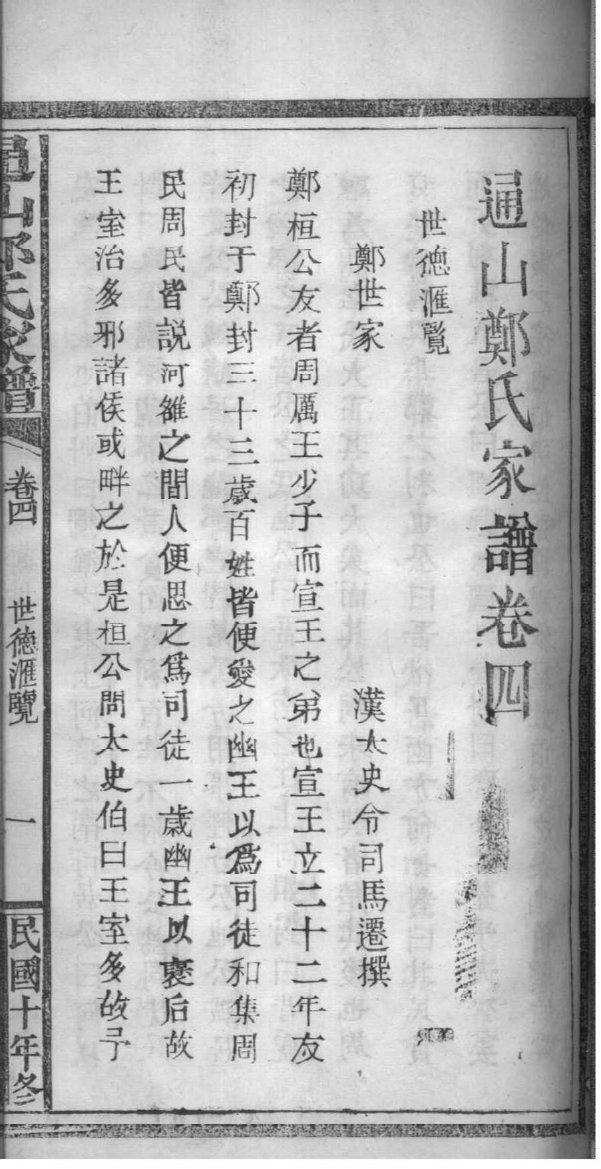 通山鄭氏家譜卷四
世德滙覽
鄭世家　漢太史令司馬遷撰
鄭桓公友者周厲王少子而宣王之弟也宣王立二十二年友
初封于鄭封三十三歲百姓皆便愛之幽王以爲司徒和集周
民周民皆說河雒之間人便思之爲司徒一歲幽王以褒后故
王室治多邪諸侯或畔之於是桓公問太史伯曰王室多故予
通山鄭氏家譜
卷四
世德滙覽
一
民國十年冬